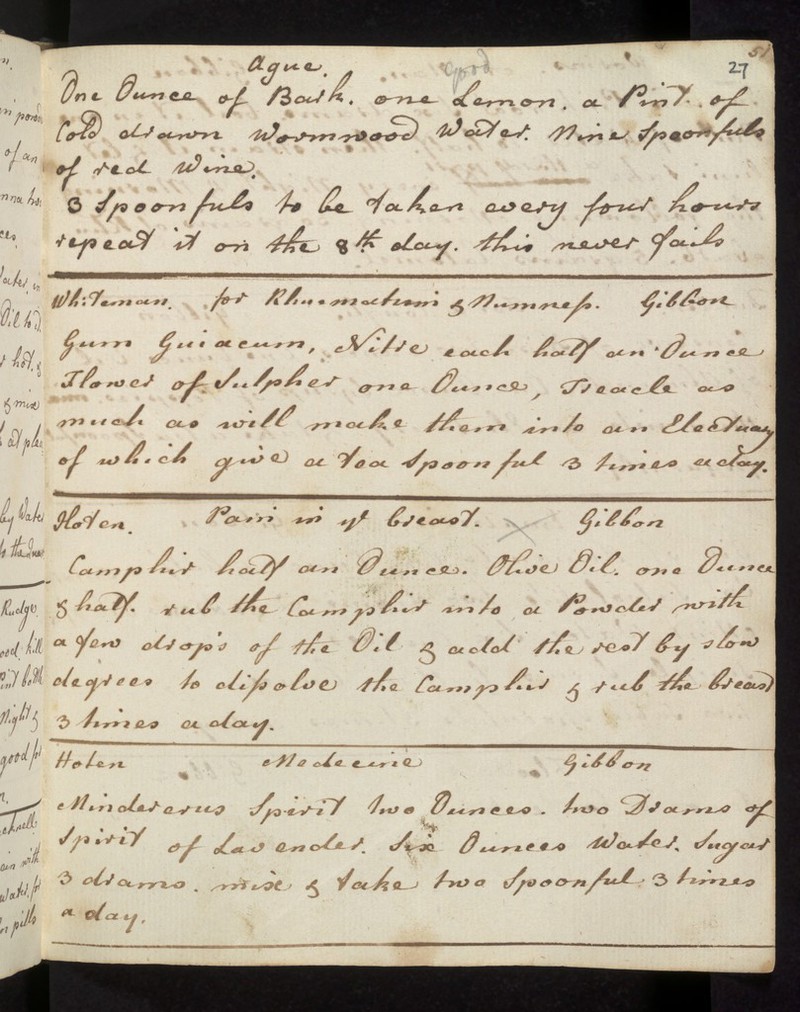 Ague. good 27
One Ounce of Bark. one Lemon. a Pint of
Cold drawn Wormwood Water. Nine Spoonfuls
of red Wine.
3 Spoonfuls to be taken every four hours
repeat it on the 8th day. this never fails
Whiteman. for Rhumatism & Numness. Gibbon
Gum Guiacum, Nitre each half an Ounce
Flower of Sulpher one Ounce, Treacle as
much as will make them into an Electuary
of which give a tea Spoonful 3 times a day.
Hoten. Pain in ye breast. Gibbon
Camphir half an Ounce. Olive Oil. one Ounce
& half. rub the Camphir into a Powder with
a few drop's of the Oil & add the rest by slow
degrees to dissolve the Camphir & rub the breast
3 times a day.
Hoten Medecine Gibbon
Mindererus Spirit two Ounces. two Drams of
Spirit of Lavender. Six Ounces Water. Sugar
3 drams. mix & take two Spoonful 3 times
a day.